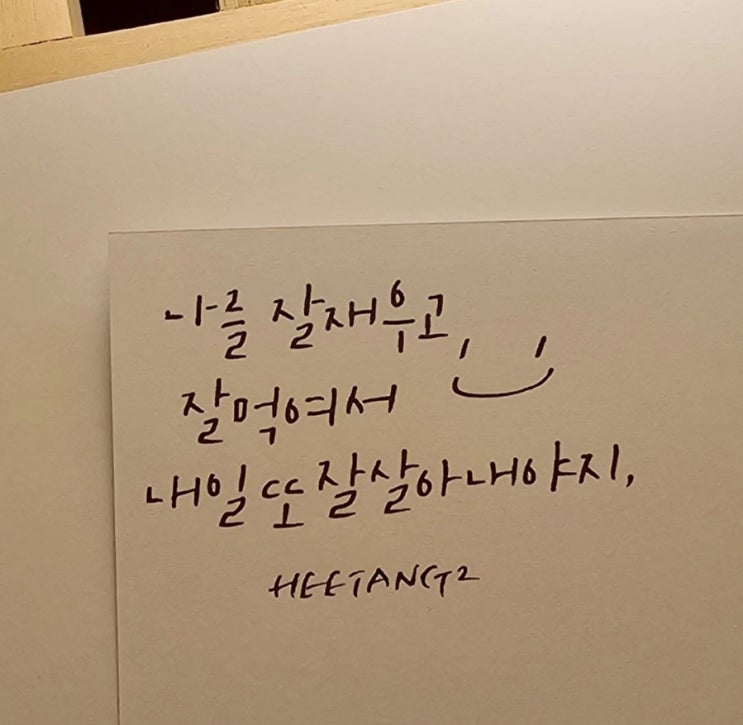 나를 잘 재우고,
잘 먹여서
내일 또 잘 살아내야지,
HEETANG2